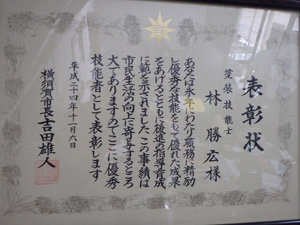 表彰状
塗装技能士
林勝宏様
あなたは永年にわたり職務に精励
し優秀な技能をもって優れた成果
をあげるとともに後進の指導育成
に範を示されましたこの事績は
市民生活の向上に寄与するところ
大でありますのでここに優秀
技能者として表彰します
平成二十四年十一月八日
横須賀市長吉田雄人